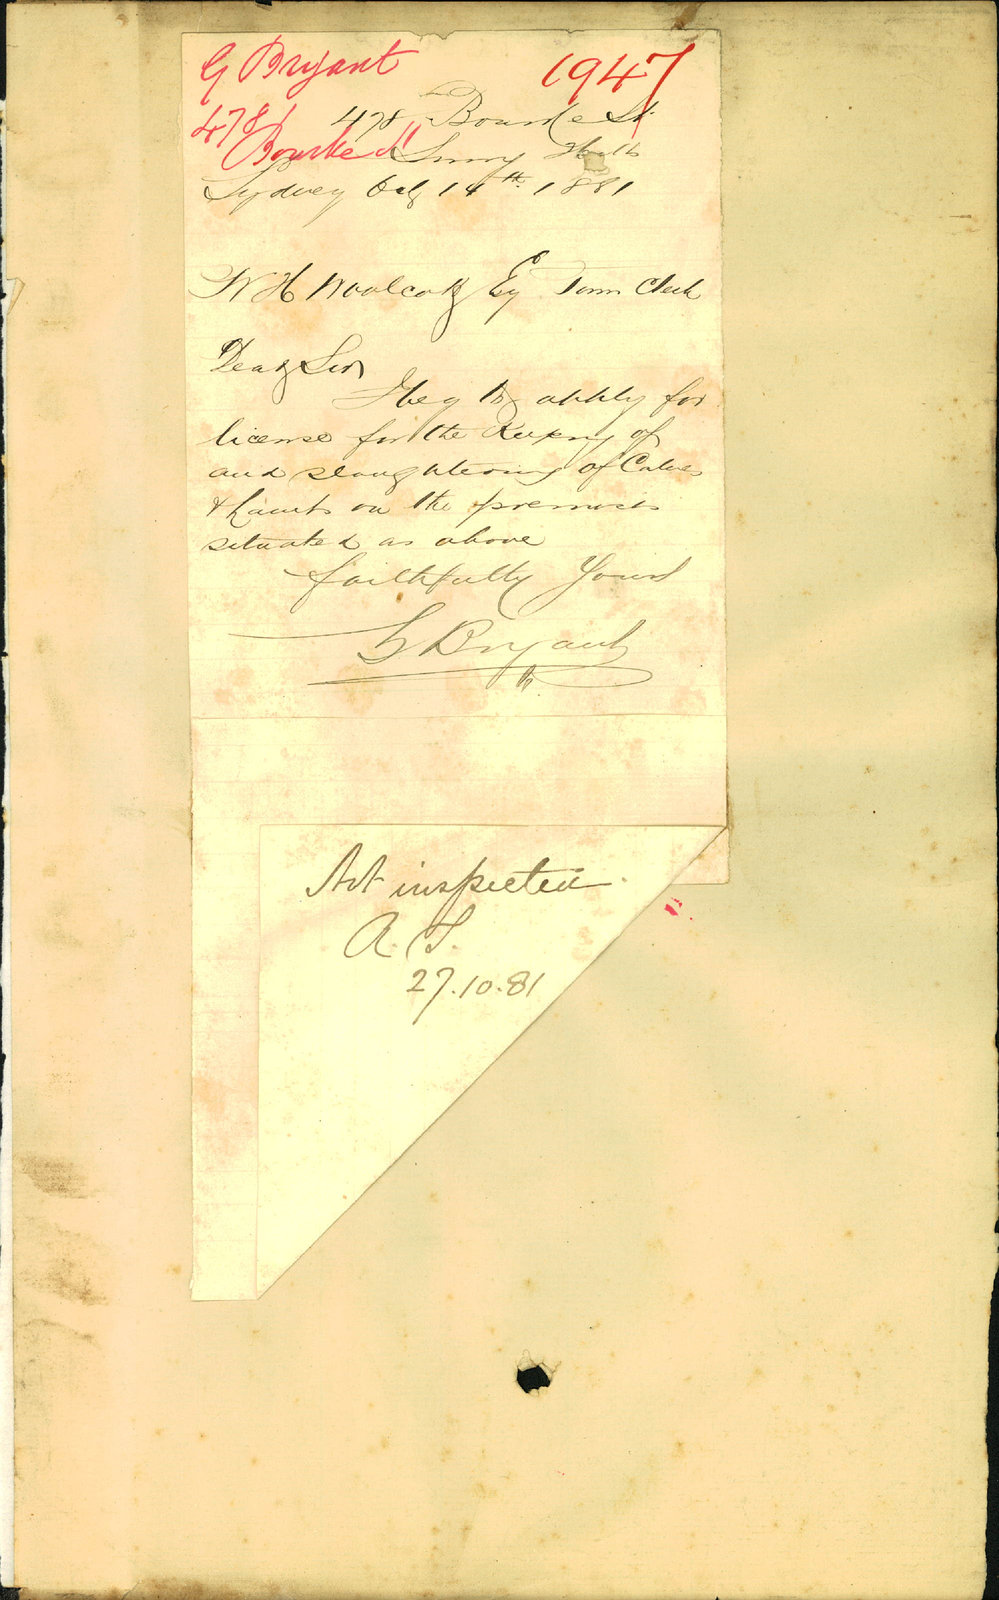 G Bryant
1947
478
Bourke St
478 Bourke St
Surry Hills
Sydney Oct 14th 1881
W H Woolcott Esq Town Clerk
Dear Sir
I beg to apply for
license for the Keeping of
and slaughtering of Calves
& Lambs on the premises
situated as above
faithfully Yours
G Bryant
Not inspected.
A. S.
27.10.81